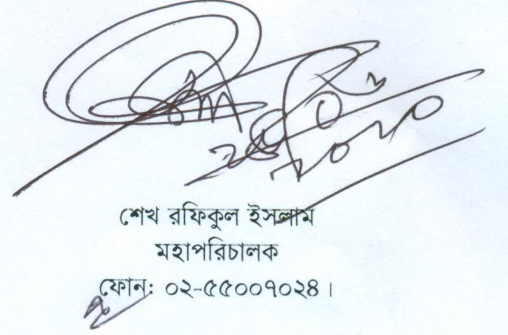 শেখ রফিকুল ইসলাম
মহাপরিচালক
ফোন: ০২-৫৫০০৭০২৪।